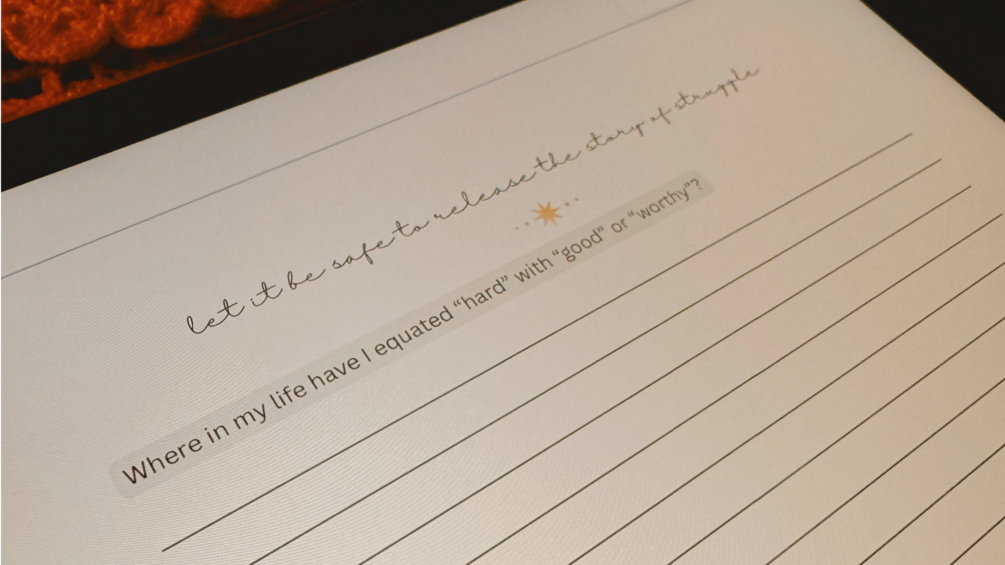 let it be safe to release the story of struggle
Where in my life have I equated “hard” with “good” or “worthy”?